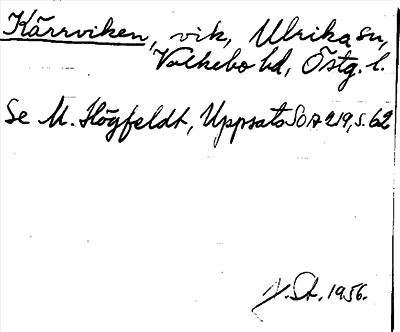 Kärrviken, vik, Ulrika sn,
Valkebo hd, Östg. l.
Se M. Högfeldt, Uppsats SOA 219, s. 62
St. 1956.